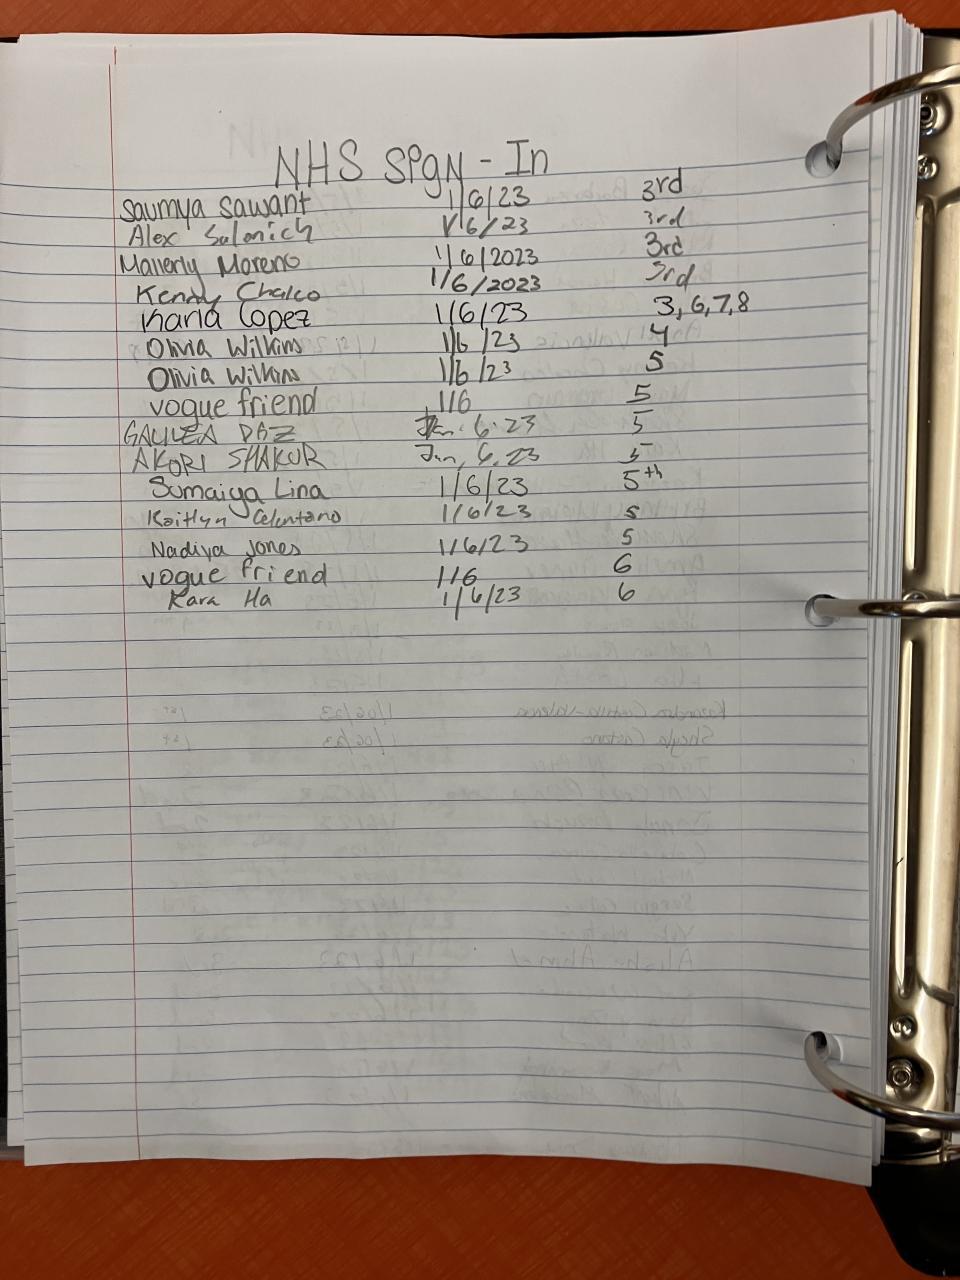 NHS SIgN - In
Saumya Sawant 1/6/23 3rd
Alex Salonich 1/6/23 3rd
Mallerly Moreno 1/6/2023 3rd
Kenny Chalco 1/6/2023 3rd
Karla Lopez 1/6/23 3, 6, 7, 8
Olivia Wilkins 1/6/23 4
Olivia Wilkins 1/6/23 5
vogue friend 1/6 5
GALILEA DAZ Jan. 6. 23 5
AKORI SHAKUR Jan, 6, 23 5
Sumaiya Lina 1/6/23 5th
Kaitlyn Celentano 1/6/23 5
Nadiya Jones 1/6/23 5
vogue friend 1/6 6
Kara Ha 1/6/23 6